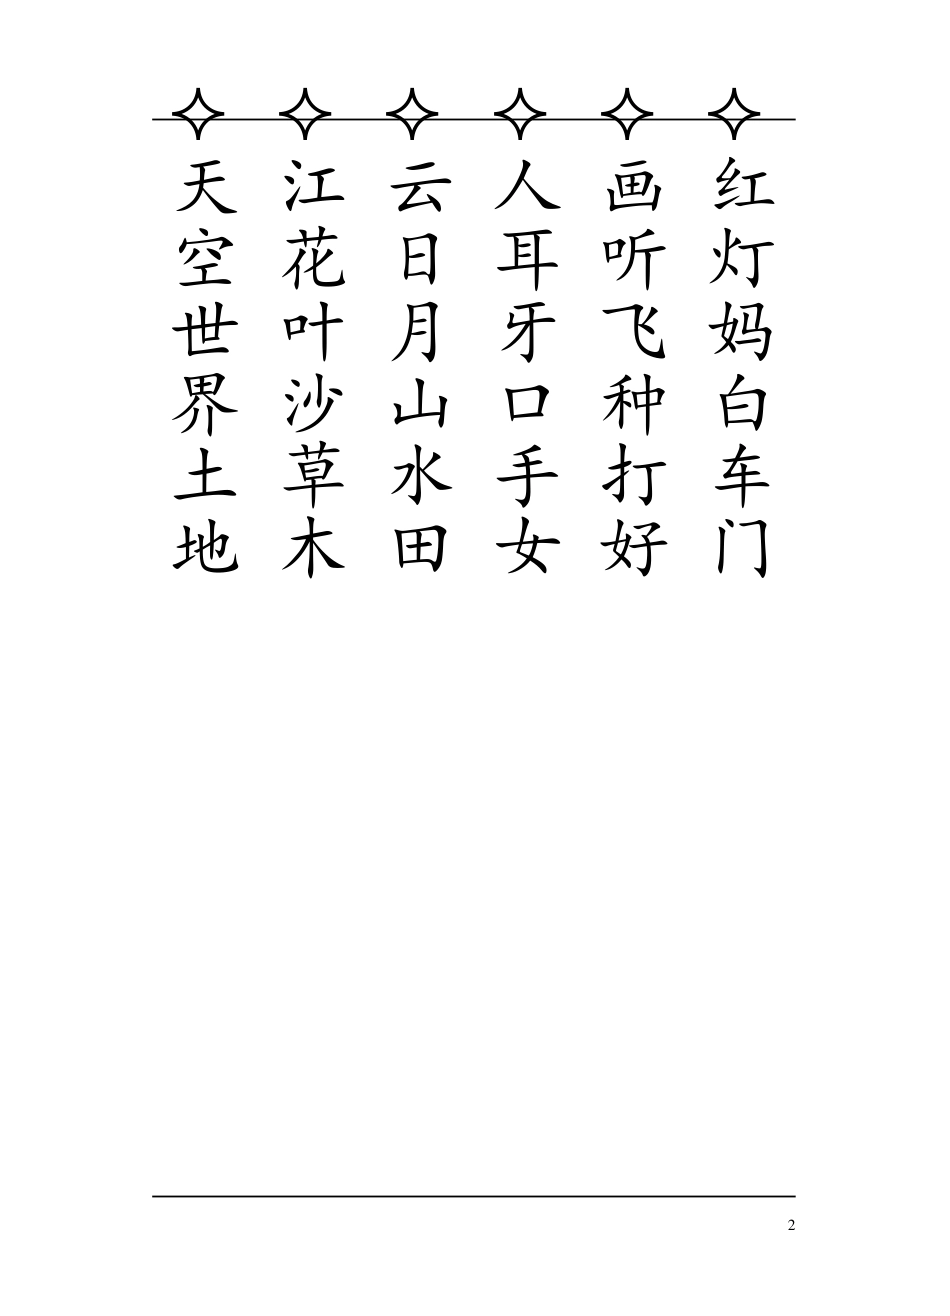 天 江 云 人 画 红
空 花 日 耳 听 灯
世 叶 月 牙 飞 妈
界 沙 山 口 种 白
土 草 水 手 打 车
地 木 田 女 好 门
2